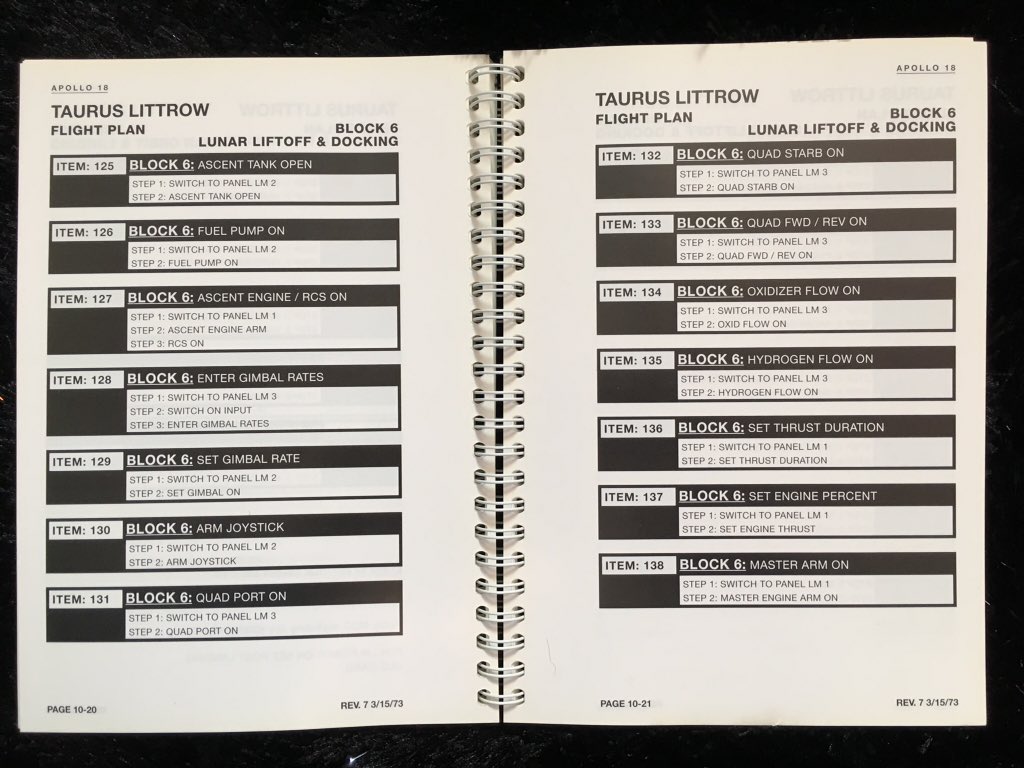 APOLLO 18
TAURUS LITTROW
FLIGHT PLAN
BLOCK 6
LUNAR LIFTOFF & DOCKING
ITEM: 125
BLOCK 6: ASCENT TANK OPEN
STEP 1: SWITCH TO PANEL LM 2
STEP 2: ASCENT TANK OPEN
ITEM: 126
BLOCK 6: FUEL PUMP ON
STEP 1: SWITCH TO PANEL LM 2
STEP 2: FUEL PUMP ON
ITEM: 127
BLOCK 6: ASCENT ENGINE / RCS ON
STEP 1: SWITCH TO PANEL LM 1
STEP 2: ASCENT ENGINE ARM
STEP 3: RCS ON
ITEM: 128
BLOCK 6: ENTER GIMBAL RATES
STEP 1: SWITCH TO PANEL LM 3
STEP 2: SWITCH ON INPUT
STEP 3: ENTER GIMBAL RATES
ITEM: 129
BLOCK 6: SET GIMBAL RATE
STEP 1: SWITCH TO PANEL LM 2
STEP 2: SET GIMBAL ON
ITEM: 130
BLOCK 6: ARM JOYSTICK
STEP 1: SWITCH TO PANEL LM 2
STEP 2: ARM JOYSTICK
ITEM: 131
BLOCK 6: QUAD PORT ON
STEP 1: SWITCH TO PANEL LM 3
STEP 2: QUAD PORT ON
PAGE 10-20
REV. 7 3/15/73
APOLLO 18
TAURUS LITTROW
FLIGHT PLAN
BLOCK 6
LUNAR LIFTOFF & DOCKING
ITEM: 132
BLOCK 6: QUAD STARB ON
STEP 1: SWITCH TO PANEL LM 3
STEP 2: QUAD STARB ON
ITEM: 133
BLOCK 6: QUAD FWD / REV ON
STEP 1: SWITCH TO PANEL LM 3
STEP 2: QUAD FWD / REV ON
ITEM: 134
BLOCK 6: OXIDIZER FLOW ON
STEP 1: SWITCH TO PANEL LM 3
STEP 2: OXID FLOW ON
ITEM: 135
BLOCK 6: HYDROGEN FLOW ON
STEP 1: SWITCH TO PANEL LM 3
STEP 2: HYDROGEN FLOW ON
ITEM: 136
BLOCK 6: SET THRUST DURATION
STEP 1: SWITCH TO PANEL LM 1
STEP 2: SET THRUST DURATION
ITEM: 137
BLOCK 6: SET ENGINE PERCENT
STEP 1: SWITCH TO PANEL LM 1
STEP 2: SET ENGINE THRUST
ITEM: 138
BLOCK 6: MASTER ARM ON
STEP 1: SWITCH TO PANEL LM 1
STEP 2: MASTER ENGINE ARM ON
PAGE 10-21
REV. 7 3/15/73